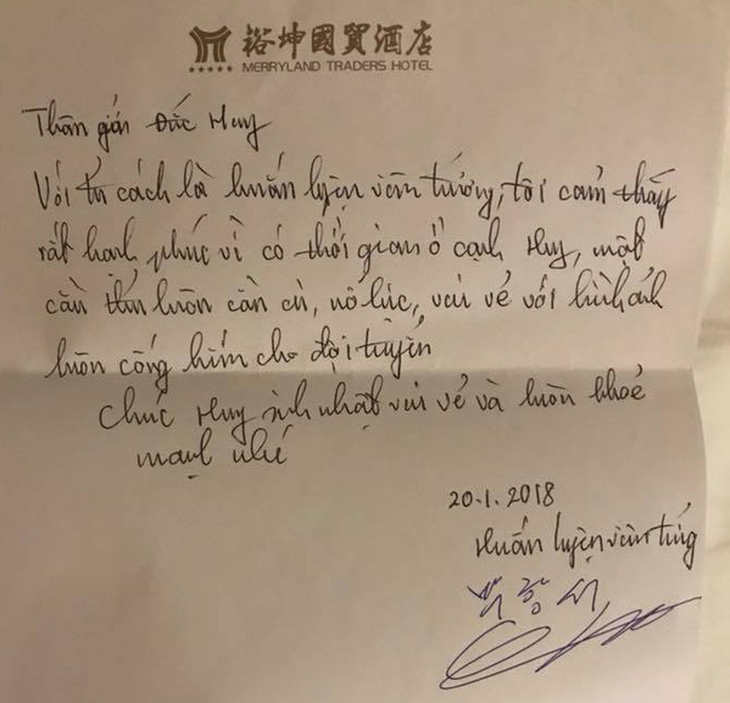 裕坤國貿酒店
MERRYLAND TRADERS HOTEL
Thân gửi Đức Huy
Với tư cách là huấn luyện viên trưởng, tôi cảm thấy
rất hạnh phúc vì có thời gian ở cạnh Huy, một
cầu thủ luôn cần cù, nỗ lực, vui vẻ với hình ảnh
luôn cống hiến cho đội tuyển
Chúc Huy sinh nhật vui vẻ và luôn khoẻ
mạnh nhé
20.1.2018
Huấn luyện viên trưởng
박항서